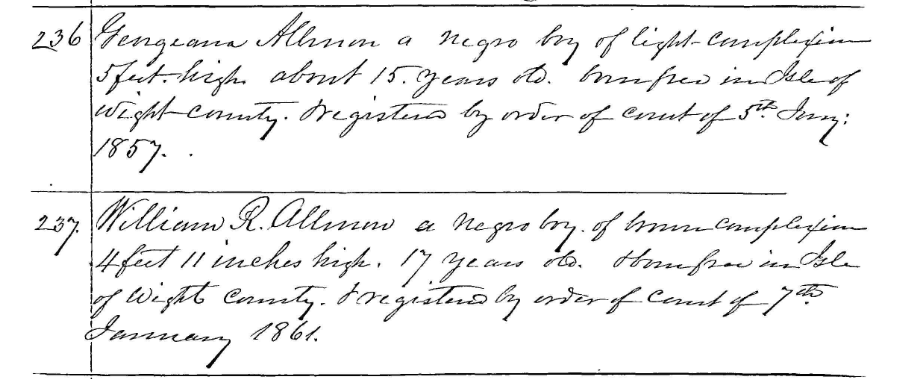 236 Georgeanna Allmon a negro boy of light complexion
5 feet high about 15 years old. born free in Isle of
Wight county. & registered by order of court of 5th Jany:
1857.
237. William R. Allmon a negro boy of brown complexion
4 feet 11 inches high. 17 years old. & born free in Isle
of Wight county. & registered by order of court of 7th
January 1861.